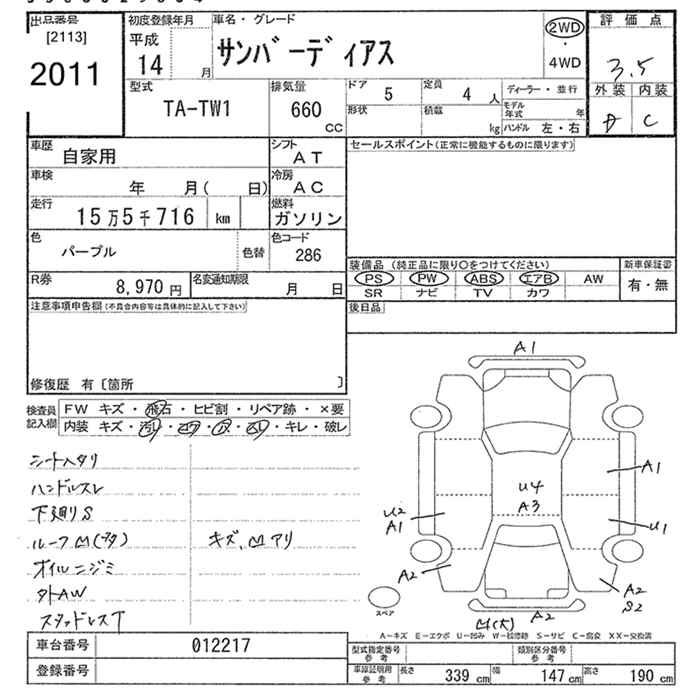 出品番号
[2113]
2011
初度登録年月
平成
14 月
車名・グレード
サンバーディアス
2WD
・
4WD
評価点
3.5
外装 内装
A C
型式
TA-TW1
排気量
660 CC
ドア 5
定員 4 人
ディーラー・並行
形状
積載 kg
モデル年式 年
ハンドル 左・右
車歴
自家用
シフト
AT
セールスポイント(正常に機能するものに限ります)
車検
年 月( 日)
冷房
AC
走行
15万5千716 km
燃料
ガソリン
色
パープル
色替
色コード
286
装備品 (純正品に限り○をつけてください)
新車保証書
PS PW ABS エアB AW
有・無
SR ナビ TV カワ
R券
8,970 円
名変通知期限
月 日
後日品
注意事項申告欄 (不具合内容等は具体的に記入して下さい)
修復歴 有 [箇所 ]
検査員記入欄
FW キズ・飛石・ヒビ割・リペア跡・×要
内装 キズ・汚レ・コゲ・穴・スレ・キレ・破レ
シートヘタリ
ハンドルスレ
下廻りS
ルーフ凹(多)
キズ、凹アリ
オイルニジミ
外AW
スタッドレスT
A1
A1
U4
A3
U2
A1
U1
A2
A2
S2
凹(大)
A2
スペア
A-キズ E-エクボ U-凹み W-板修跡 S-サビ C-腐食 XX-交換済
車台番号
012217
登録番号
型式指定番号
参考
類別区分番号
参考
車庫証明用
参考
長さ 339 cm
幅 147 cm
高さ 190 cm